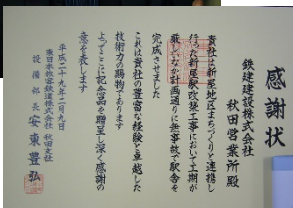 感謝状
鉄建建設株式会社
秋田営業所殿
貴社は新屋地区まちづくりと連携し
行った新屋駅改築工事において工期が
厳しいなか計画通りに無事故で駅舎を
完成させました
これは貴社の豊富な経験と卓越した
技術力の賜物であります
よってここに記念品を贈呈し深く感謝の
意を表します
平成二十九年二月九日
東日本旅客鉄道株式会社 秋田支社
設備部長 安東豊弘